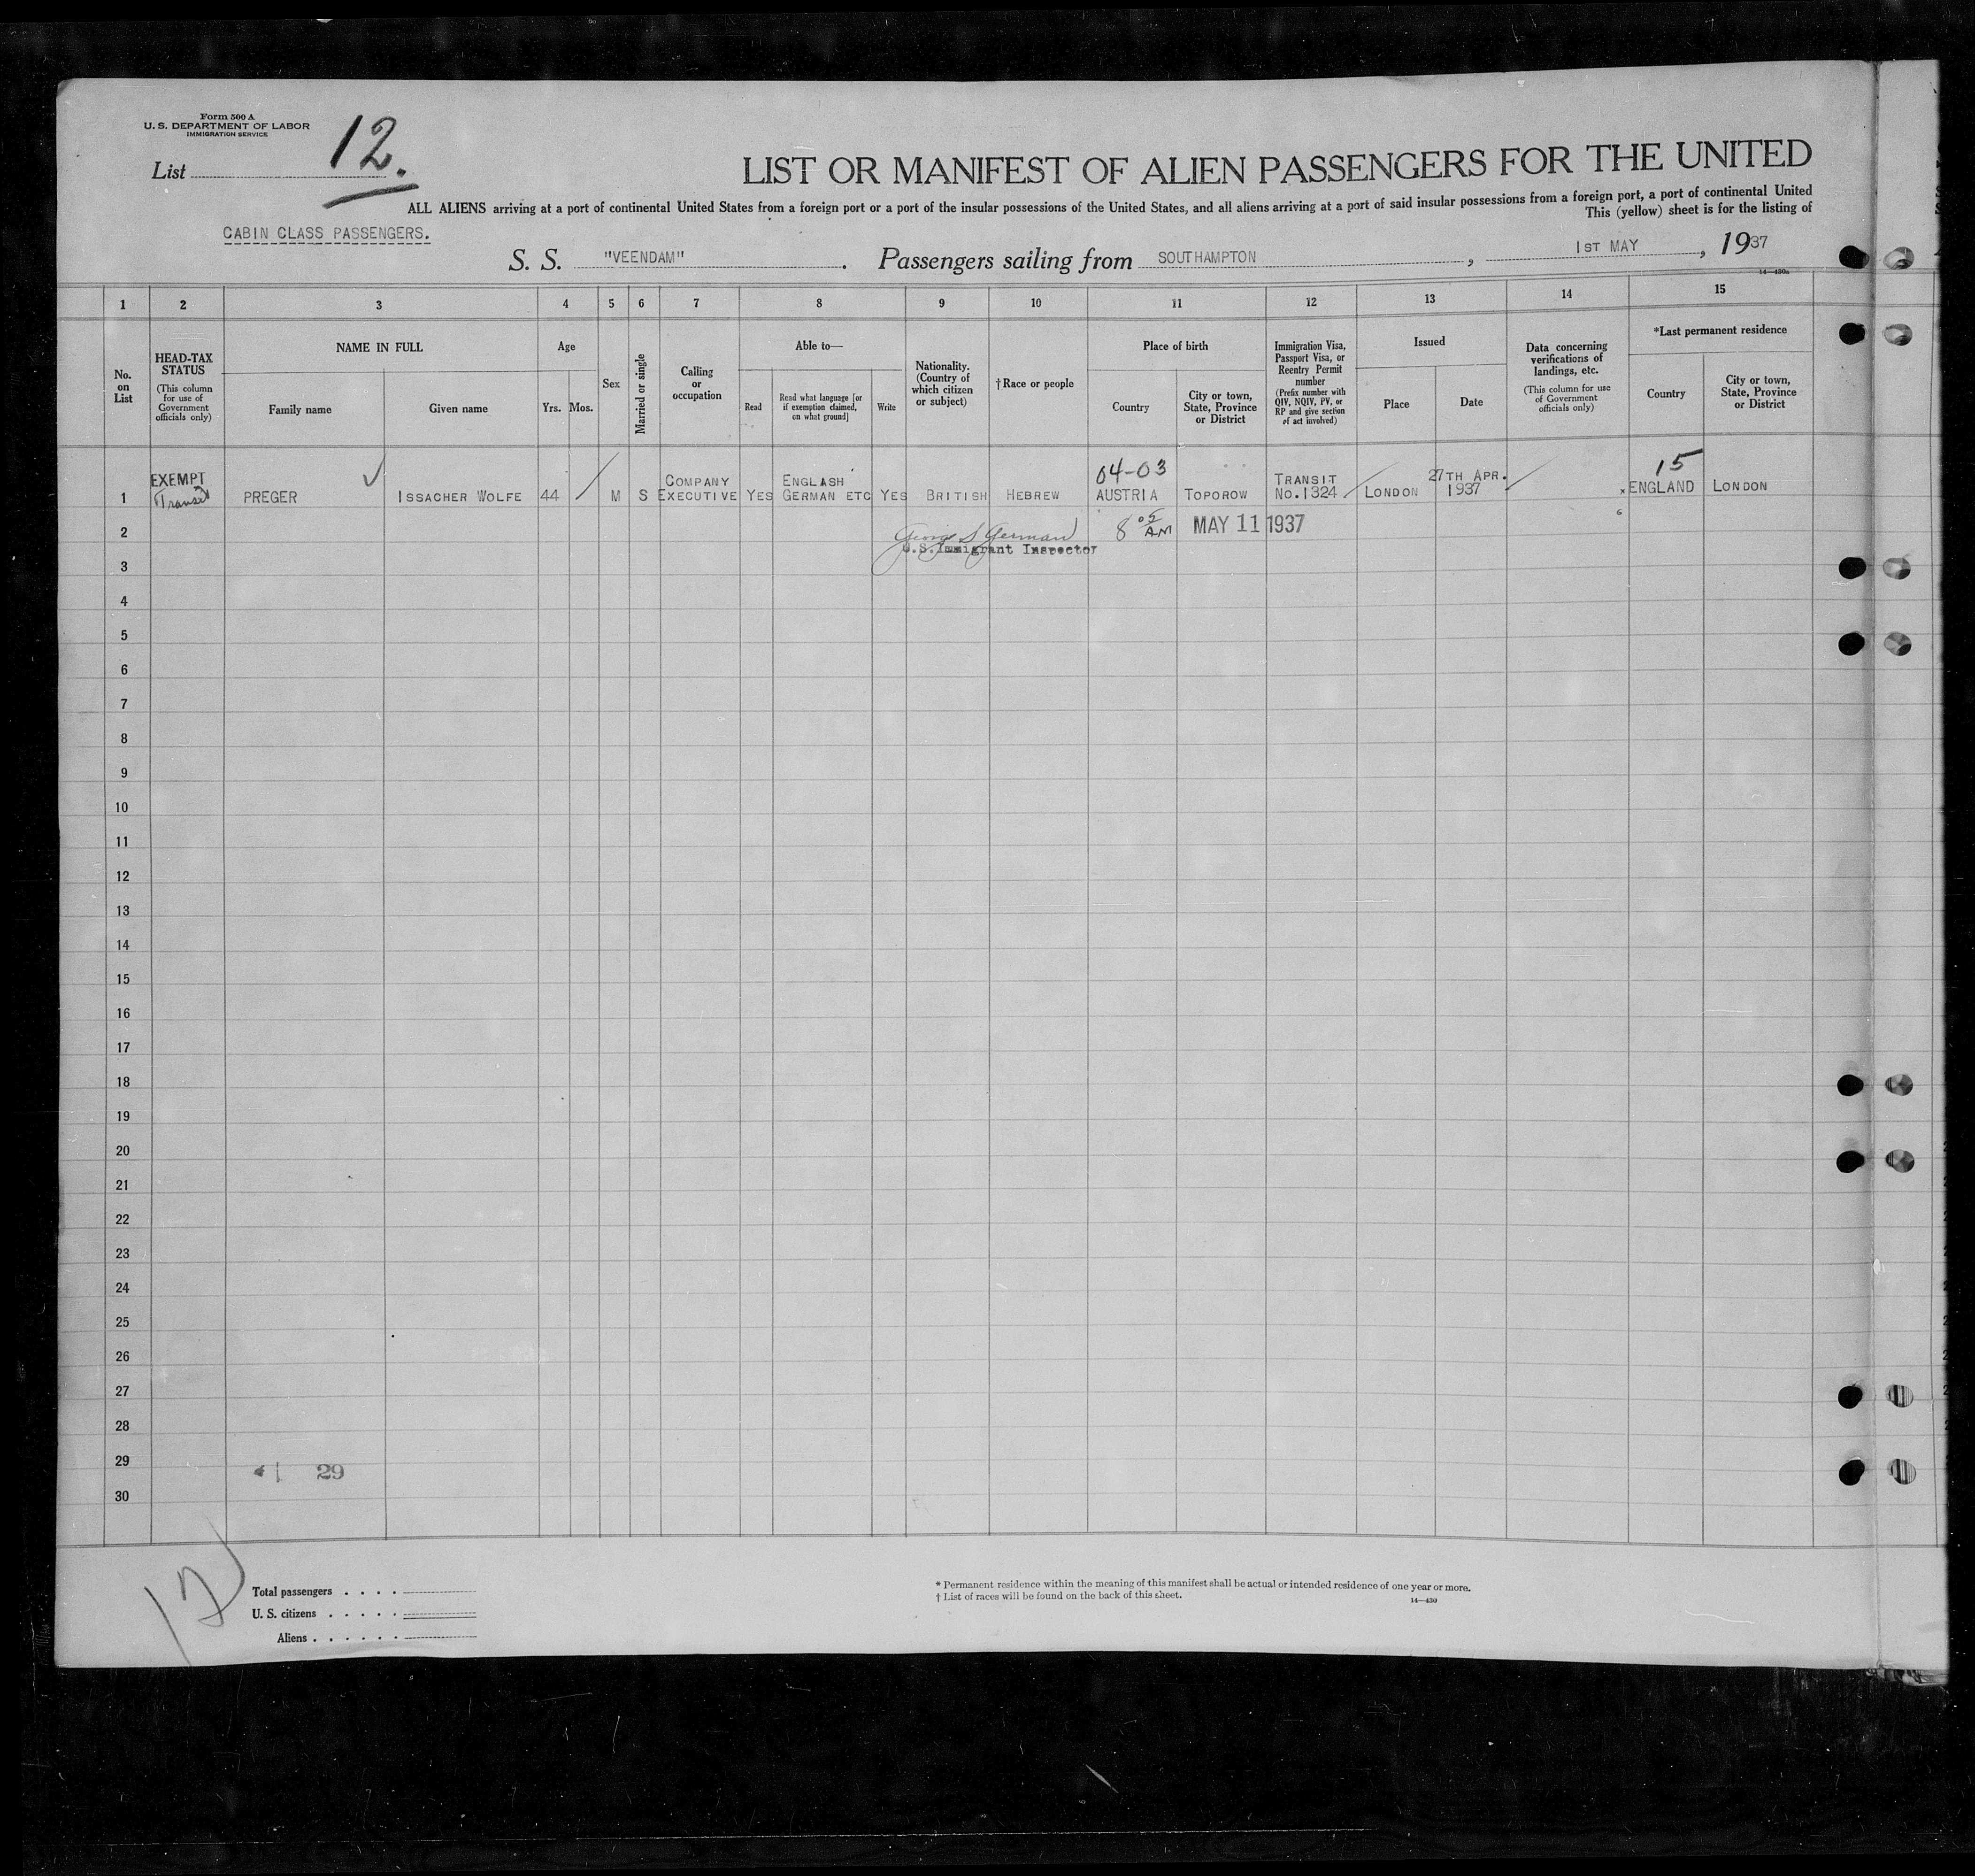 Form 500 A
U. S. DEPARTMENT OF LABOR
IMMIGRATION SERVICE
List 12.
LIST OR MANIFEST OF ALIEN PASSENGERS FOR THE UNITED
ALL ALIENS arriving at a port of continental United States from a foreign port or a port of the insular possessions of the United States, and all aliens arriving at a port of said insular possessions from a foreign port, a port of continental United
This (yellow) sheet is for the listing of
CABIN CLASS PASSENGERS.
S. S. "VEENDAM". Passengers sailing from SOUTHAMPTON, 1ST MAY, 1937
14—430a
1 2 3 4 5 6 7 8 9 10 11 12 13 14 15
No. on List
HEAD-TAX STATUS
(This column for use of Government officials only)
NAME IN FULL
Family name
Given name
Age
Yrs. Mos.
Sex
Married or single
Calling or occupation
Able to—
Read
Read what language [or if exemption claimed, on what ground]
Write
Nationality. (Country of which citizen or subject)
†Race or people
Place of birth
Country
City or town, State, Province or District
Immigration Visa, Passport Visa, or Reentry Permit number
(Prefix number with QIV, NQIV, PV, or RP and give section of act involved)
Issued
Place
Date
Data concerning verifications of landings, etc.
(This column for use of Government officials only)
*Last permanent residence
Country
City or town, State, Province or District
04-03
15
1 EXEMPT Transit PREGER ISSACHER WOLFE 44 M S COMPANY EXECUTIVE YES ENGLASH GERMAN ETC YES BRITISH HEBREW AUSTRIA TOPOROW TRANSIT No.1324 LONDON 27TH APR. 1937 x ENGLAND LONDON
2 George S German 8 05 AM MAY 11 1937 6
U.S. Immigrant Inspector
3
4
5
6
7
8
9
10
11
12
13
14
15
16
17
18
19
20
21
22
23
24
25
26
27
28
29 29
30
12
Total passengers . . . .
U. S. citizens . . . . .
Aliens . . . . . .
* Permanent residence within the meaning of this manifest shall be actual or intended residence of one year or more.
† List of races will be found on the back of this sheet.
14—430